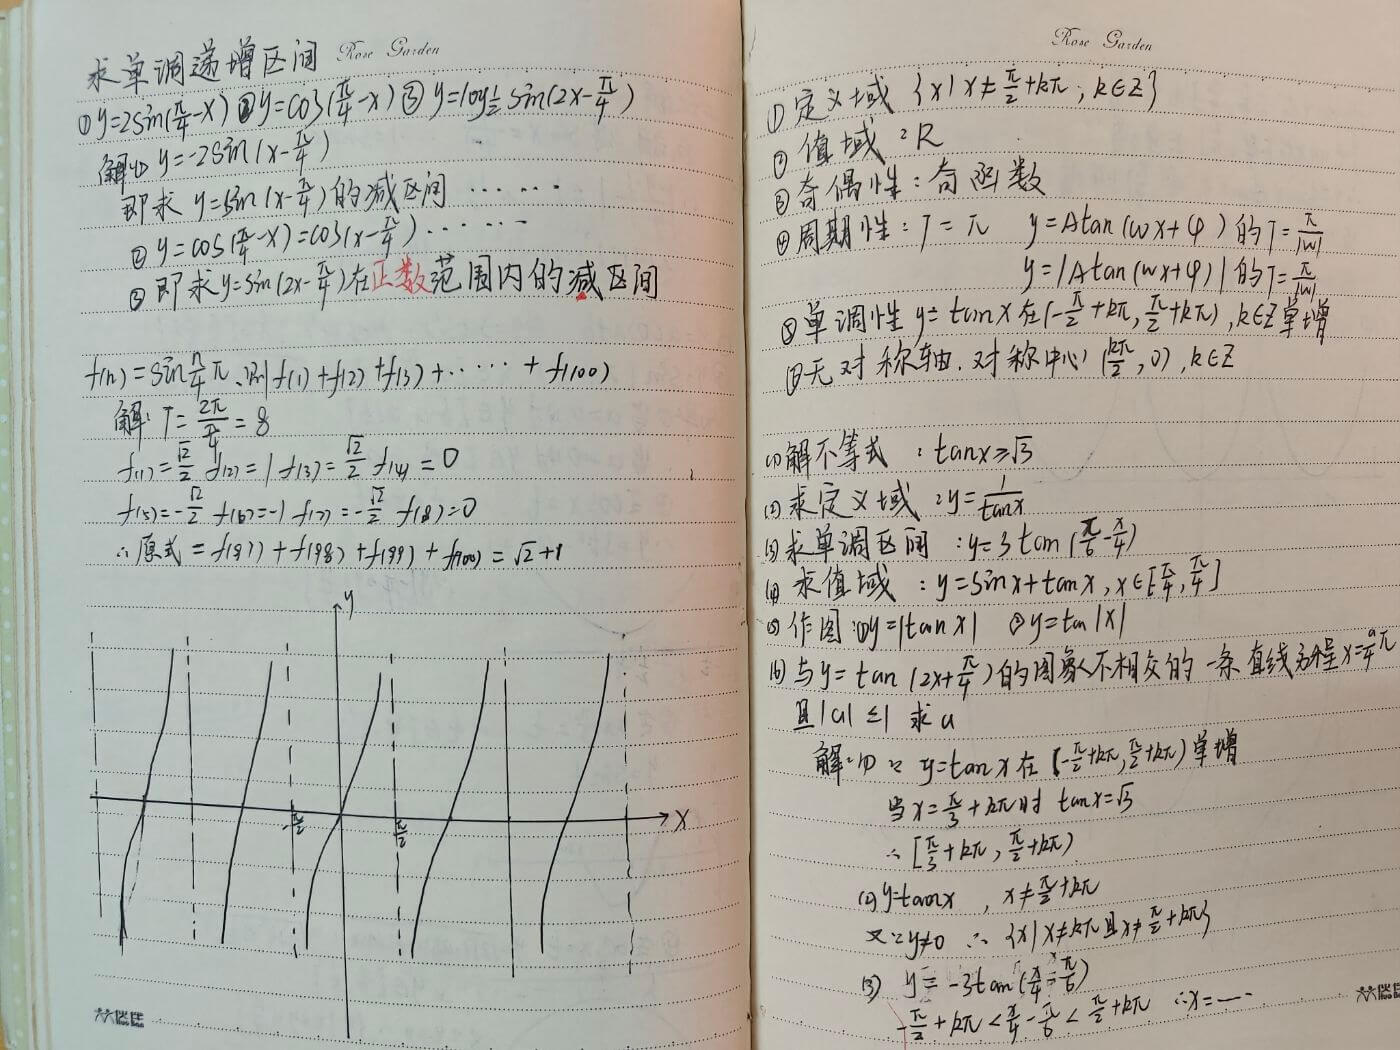 Rose Garden
求单调递增区间
① y=2sin(π/4-x) ② y=cos(π/4-x) ③ y=log½ sin(2x-π/4)
解:① y=-2sin(x-π/4)
即求 y=sin(x-π/4)的减区间 ……
② y=cos(π/4-x)=cos(x-π/4)……
③ 即求y=sin(2x-π/4)在正数范围内的减区间
f(n)=sin n/4 π,则f(1)+f(2)+f(3)+……+f(100)
解: T=2π/(π/4)=8
f(1)=√2/2 f(2)=1 f(3)=√2/2 f(4)=0
f(5)=-√2/2 f(6)=-1 f(7)=-√2/2 f(8)=0
∴原式=f(97)+f(98)+f(99)+f(100)=√2+1
y
-π/2 π/2 x
Rose Garden
① 定义域 {x|x≠π/2+kπ, k∈Z}
② 值域:R
③ 奇偶性:奇函数
④ 周期性:T=π y=Atan(wx+φ)的T=π/|w|
y=|Atan(wx+φ)|的T=π/|w|
⑤ 单调性 y=tanx在(-π/2+kπ,π/2+kπ),k∈Z单增
无对称轴.对称中心(kπ/2,0),k∈Z
(1)解不等式:tanx≥√3
(2)求定义域:y=1/tanx
(3)求单调区间:y=3tan(π/6-x/4)
(4)求值域:y=sinx+tanx,x∈[-π/4,π/4]
(5)作图:①y=|tanx| ②y=tan|x|
(6)与y=tan(2x+π/4)的图象不相交的一条直线方程x=a/4π
且|a|≤1 求a
解:(1)∵y=tanx在(-π/2+kπ,π/2+kπ)单增
当x=π/3+kπ时 tanx=√3
∴[π/3+kπ,π/2+kπ)
(2)y=tanx,x≠π/2+kπ
又∵y≠0 ∴{x|x≠kπ且x≠π/2+kπ}
(3) y=-3tan(x/4-π/6)
-π/2+kπ<x/4-π/6<π/2+kπ ∴x=……